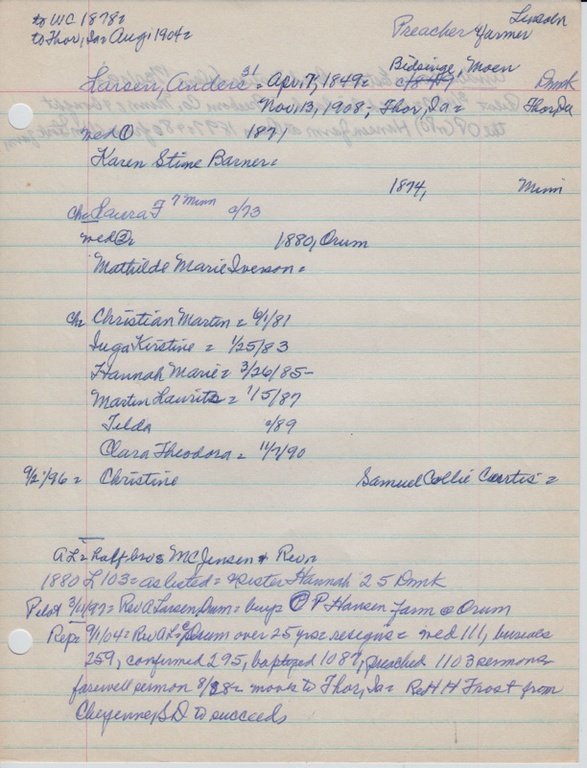 to WC 1878=
to Thor, Ia= Aug. 1904=
Preacher & farmer
Lincoln
Larsen, Anders 31 = Apr. 7, 1849=
Bidsinge, Moen
Dmk
Nov. 13, 1908, Thor, Ia=
Thor, Ia
med ① 1871
Karen Stine Barner=
1874, Minn
ch= Laura F 7 Minn 0/73
med ②= 1880, Orum
Mathilde Marie Iverson=
ch= Christian Martin = 6/1/81
Inga Kirstine = 1/25/83
Hannah Marie = 3/26/85-
Martin Laurits = 1/15/87
Tilda 0/89
Clara Theodora = 11/7/90
9/2/96 = Christine Samuel Collie Curtis =
AL= half bros MC Jensen + Rev
1880 L103 = as listed = sister Hannah 25 Dmk
Pilot 3/11/97= Rev A Larsen, Orum = buys P Hansen farm @ Orum
Rep= 9/1/04= Rev AL= @ Orum over 25 yrs= resigns = wed 111, buries
259, confirmed 295, baptized 1087, preached 1103 sermons
farewell sermon 8/28= moves to Thor, Ia= Rev H H Frost from
Cheyenne, SD to succeeds